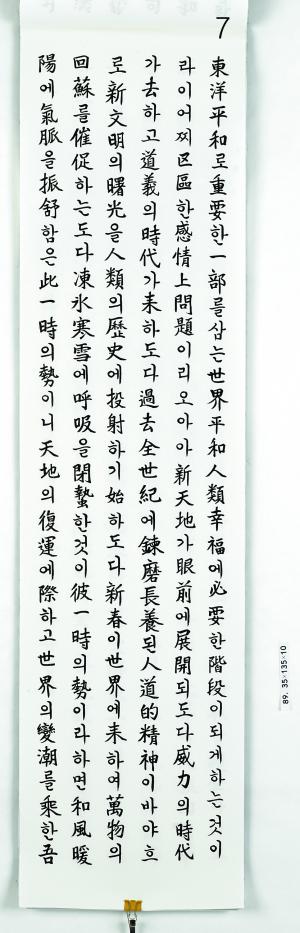 7
東洋平和로重要한一部를삼는世界平和人類幸福에必要한階段이되게하는것이
라이어찌区區한感情上問題이리오아아新天地가眼前에展開되도다威力의時代
가去하고道義의時代가来하도다過去全世紀에鍊磨長養된人道的精神이바야흐
로新文明의曙光을人類의歷史에投射하기始하도다新春이世界에来하여萬物의
回蘇를催促하는도다凍氷寒雪에呼吸을閉蟄한것이彼一時의勢이라하면和風暖
陽에氣脈을振舒함은此一時의勢이니天地의復運에際하고世界의變潮를乘한吾
89. 35×135×10